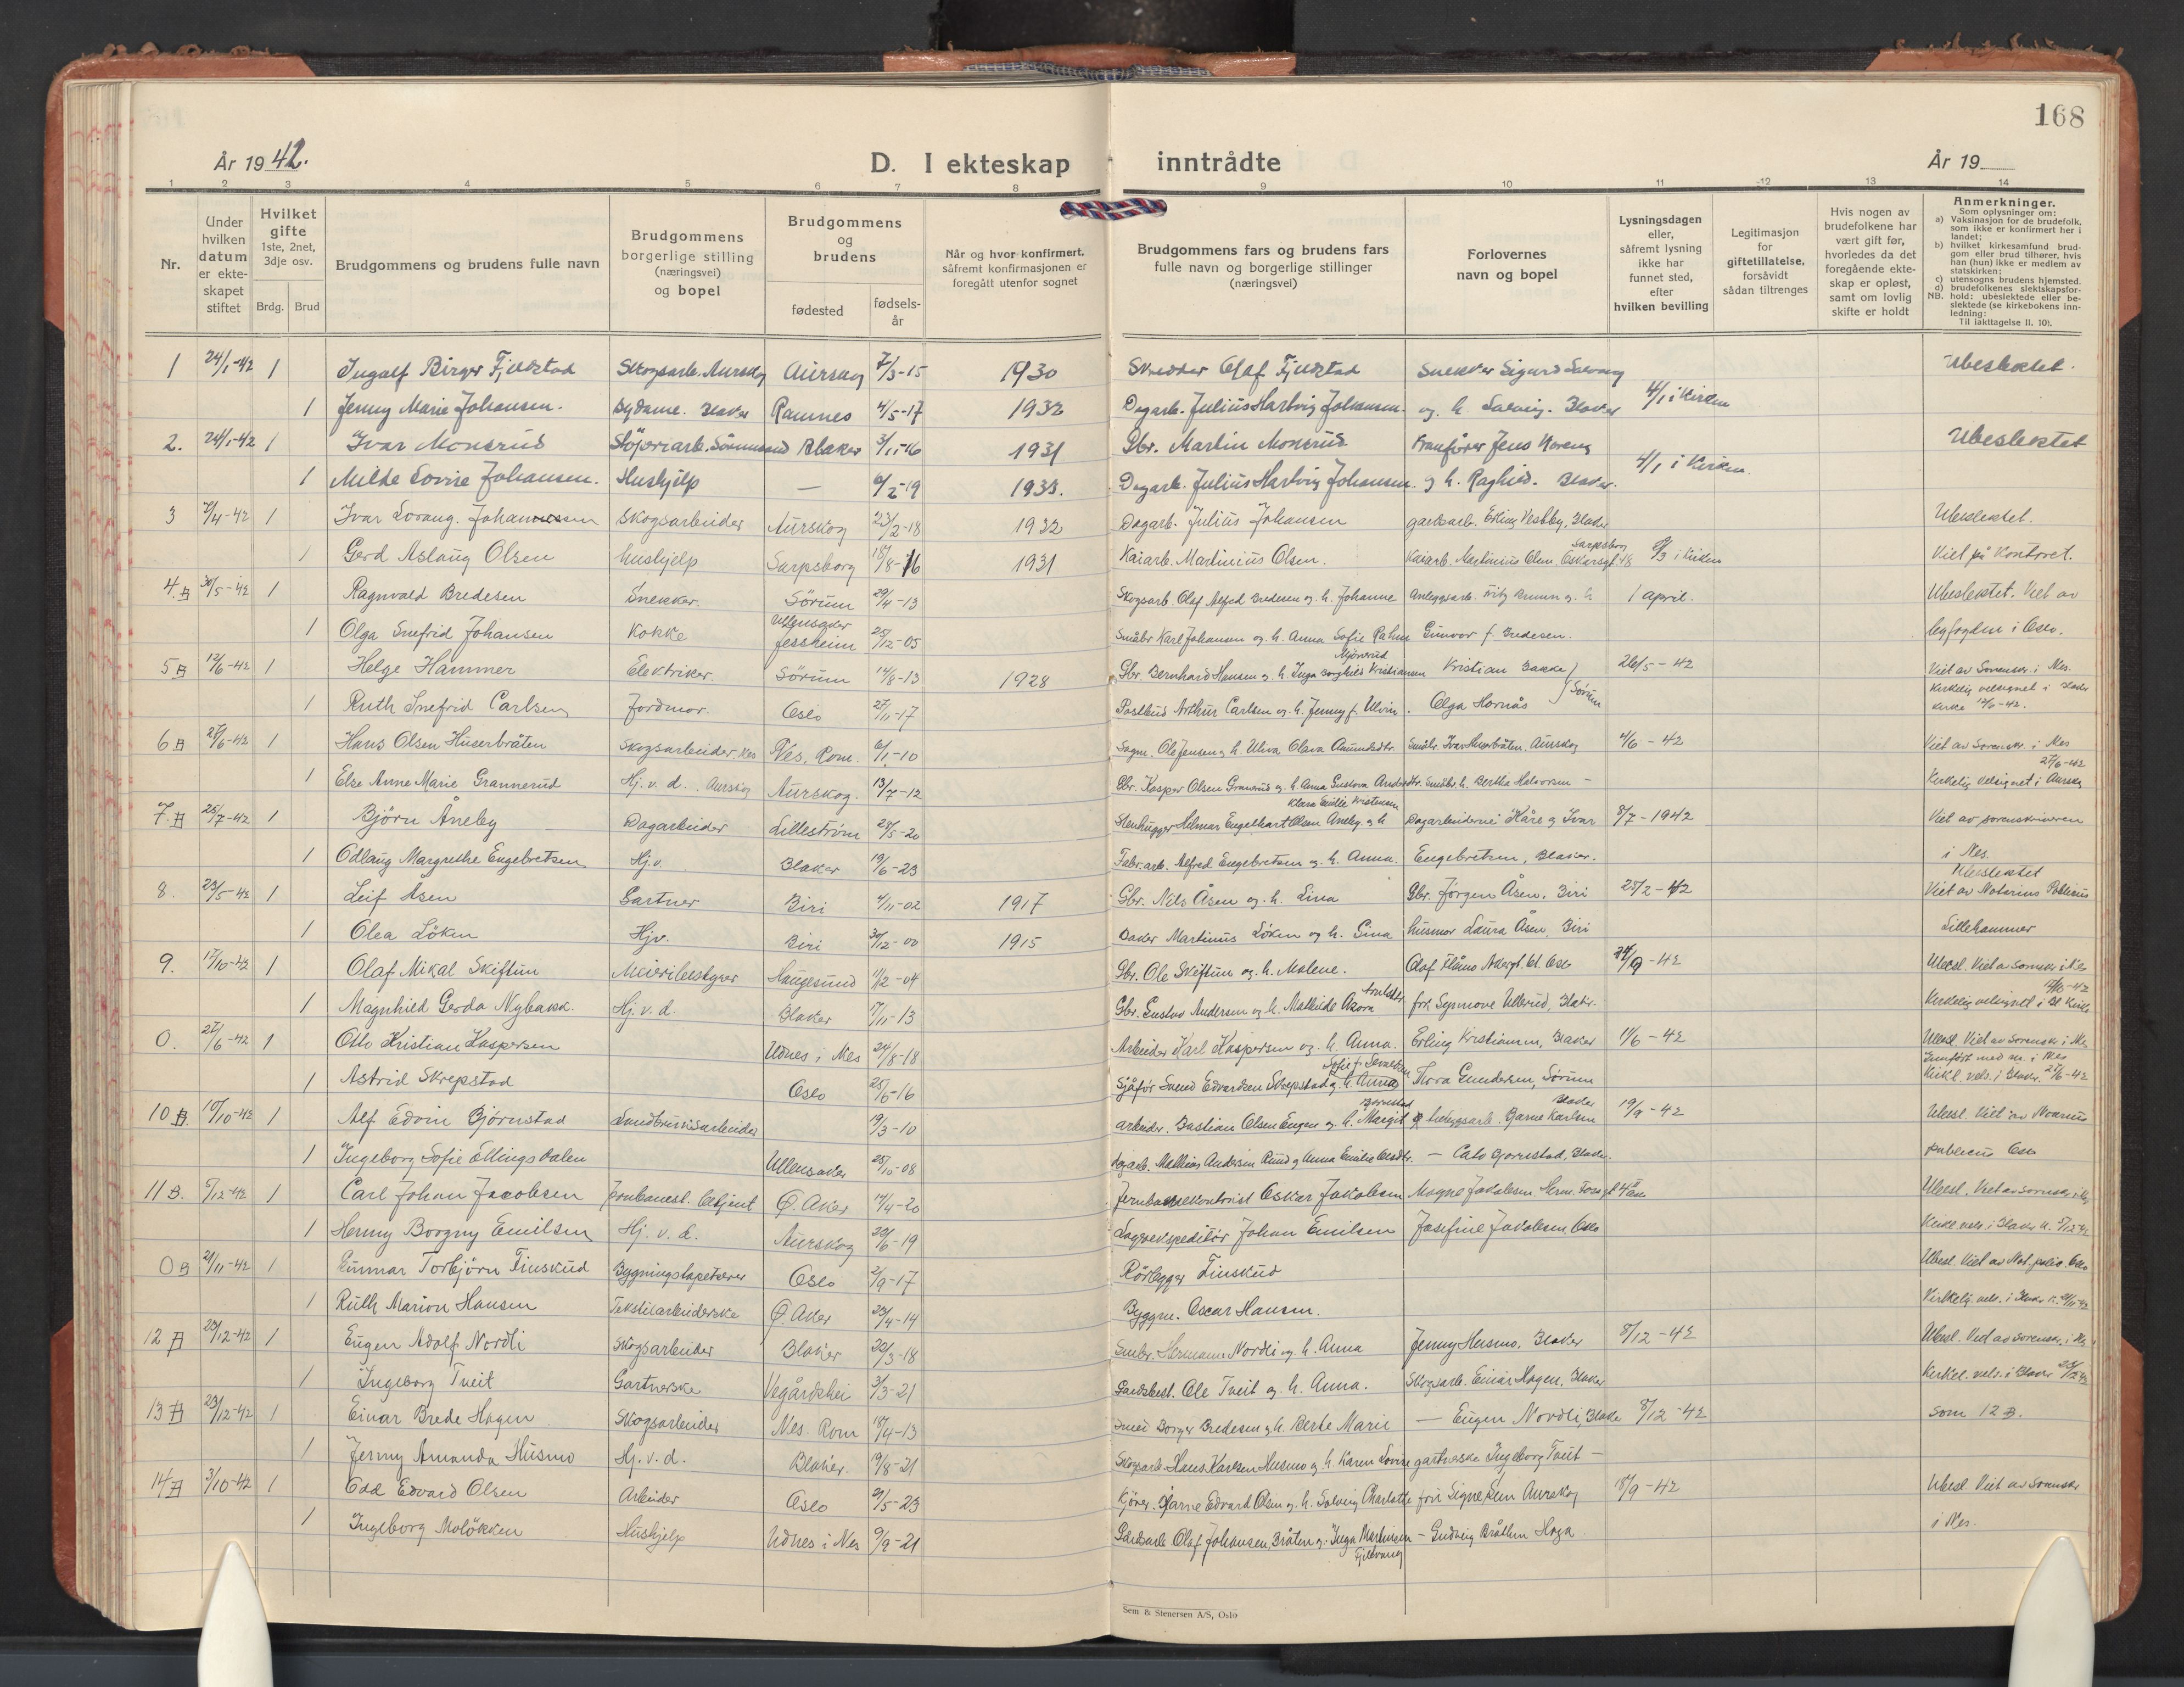 168
År 1942.
D. I ekteskap inntrådte
År 19
1 2 3 4 5 6 7 8 9 10 11 12 13 14
Nr.
Under hvilken datum er ekteskapet stiftet
Hvilket gifte 1ste, 2net, 3dje osv.
Brdg. Brud
Brudgommens og brudens fulle navn
Brudgommens borgerlige stilling (næringsvei) og bopel
Brudgommens og brudens
fødested
fødselsår
Når og hvor konfirmert, såfremt konfirmasjonen er foregått utenfor sognet
Brudgommens fars og brudens fars fulle navn og borgerlige stillinger (næringsvei)
Forlovernes navn og bopel
Lysningsdagen eller, såfremt lysning ikke har funnet sted, efter hvilken bevilling
Legitimasjon for giftetillatelse, forsåvidt sådan tiltrenges
Hvis nogen av brudefolkene har vært gift før, hvorledes da det foregående ekteskap er opløst, samt om lovlig skifte er holdt
Anmerkninger.
Som oplysninger om:
a) Vaksinasjon for de brudefolk, som ikke er konfirmert her i landet;
b) hvilket kirkesamfund brudgom eller brud tilhører, hvis han (hun) ikke er medlem av statskirken;
c) utensogns brudens hjemsted.
d) brudefolkenes slektskapsforhold: ubeslektede eller beslektede (se kirkebokens innledning:
NB.
Til iakttagelse II. 10).
1 24/1-42 1 Ingolf Birger Fjeldstad Skogsarb. Aurskog Aurskog 7/3-15 1930 Skredder Olaf Fjeldstad Snekker Sigurd Solvang 4/1 i Kirken Ubeslektet.
1 Jenny Marie Johansen. Sydame. Blaker Ramnes 4/5-17 1932 Dagarb. Julius Hartvig Johansen. og h. Solveig. Blaker
2. 24/1-42 1 Ivar Monsrud Blaker 3/11-16 1931 Gbr. Martin Monsrud Jens 4/1 i Kirken. Ubeslektet
1 Milde Lovise Johansen. Hushjelp — 6/2-19 1933. Dagarb. Julius Hartvig Johansen. og h. Raghild. Blaker.
3 7/4-42 1 Ivar Skogsarbeider Aurskog 23/2-18 1932 Dagarb. Julius Johansen Erling Vestby, Blaker Ubeslektet.
1 Gerd Aslaug Olsen hushjelp Sarpsborg 18/8-16 1931 Kaiarb. Martinius Olsen. Kaiarb. Martinius Olsen. Oskarsgt. 48 Sarpsborg 8/3 i Kirken Viet på Kontoret.
4.B 30/5-42 1 Ragnvald Bredesen Snekker. Sörum 29/4-13 Skogsarb. Olaf Alfred Bredesen og h. Johanne Anleggsarb. og h 1 april. Ubeslektet. Viet av
1 Olga Snefrid Johansen Kokke Ullensaker Jessheim 25/12-05 Småbr Karl Johansen og h. Anna Sofie Gunvor f. Bredesen. byfogden i Oslo.
5B 12/6-42 1 Helge Hammer Elektriker Sörum 14/6-13 1928 Gbr. Bernhard Hansen og h. Inga Kristiansen Kristian Bakke 26/5-42 Viet av Sorenskr. i Nes.
1 Ruth Snefrid Carlsen Jordmor. Oslo 27/11-17 Postbud Arthur Carlsen og h. Jenny f. Ulvin. Olga Hornås Sörum Kirkelig velsignet i Blaker kirke 12/6-42.
6B 27/6-42 1 Hans Olsen Huserbråten Skogsarbeider, Nes Nes, Rom. 6/1-10 Sagm. Ole Jensen og h. Olava Amundsdtr. Småbr. Ivar Huserbråten. Aurskog 4/6-42 Viet av Sorenskr. i Nes
1 Else Anne Marie Grannerud Hj. v. d. Aurskog Aurskog. 13/7-12 Gbr. Kasper Olsen og h. Anna Gustava Bertha Halvorsen - 27/6-42 Kirkelig velsignet i Aurskog
7.B 25/7-42 1 Björn Åneby Dagarbeider Lilleström 28/5-20 Stenhugger Helmar Engelhart Olsen Aneby og h Klara Emilie Kristensen Dagarbeiderne Kåre og Ivar 8/7-1942 Viet av sorenskriveren
1 Odlaug Margrethe Engebretsen Hj.v. Blaker 19/6-23 Fabr.arb. Alfred Engebretsen og h. Anna. Engebretsen, Blaker. i Nes. Ubeslektet
8. 23/5-42 1 Leif Åsen Gartner Biri 4/11-02 1917 Gbr. Nils Åsen og h. Lina Gbr. Jörgen Åsen. Biri 25/2-42 Viet av Notarius Publicus
1 Olea Löken Hjv. Biri 30/12-00 1915 Baker Martinus Löken og h. Gina husmor Laura Åsen, Biri Lillehammer
9. 17/10-42 1 Olaf Mikal Skiftun Meieribestyrer Haugesund 11/2-04 Gbr. Ole Skiftun og h. Malene. Olaf 24/9-42 Ubesl. Viet av sorenskr. i Nes
1 Magnhild Gerda Nybakk. Hj. v. d. Blaker 17/11-13 Gbr. Gustav Andersen og h. Mathilde frk. Synnöve Ullerud, Blaker. 17/10-42 Kirkelig velsignet i Bl. Kirke
0. 27/6-42 1 Otto Kristian Kaspersen Udnes i Nes 24/8-18 Arbeider Karl Kaspersen og h. Anna. Erling Kristiansen, Blaker 11/6-42 Ubesl. Viet av Sorenskr i Nes
1 Astrid Skrepstad Oslo 25/6-16 Sjåför Svend Edvardsen Skrepstad og h. Anna Thora Gundersen, Sörum Kirkl. vels. i Blaker. 27/6-42
10 B. 10/10-42 1 Alf Edvin Björnstad 19/3-10 arbeider. Bastian Olsen Engen og h. Margit Bjarne Karlsen Blaker 19/9-42 Ubesl. Viet av Notarius
1 Ingeborg Sofie Ellingsdalen Ullensaker 25/10-08 dagarb. Mathias Andersen Ruud og Anna Emilie — Blaker. publicus Oslo
11 B. 5/12-42 1 Carl Johan Jacobsen Jernbanest. betjent Ö. Aker 14/4-20 Jernbanekontorist Oskar Jakobsen Magne Jakobsen Ubesl. Viet av sorenskr.
1 Henny Borgny Emilsen Hj. v. d. Aurskog 20/6-19 Lagerekspeditör Johan Emilsen Josefine Jakobsen, Oslo Kirkl. vels. i Blaker k. 5/12-42
0B 21/11-42 1 Gunnar Torbjörn Finskud Bygningstapetserer Oslo 2/9-17 Rörlegger Finskud Ubesl. Viet av Not. publ. Oslo
1 Ruth Marion Hansen Tekstilarbeiderske Ö. Aker 23/4-14 Byggm. Oscar Hansen. Kirkelig vels. i Blaker k. 21/11-42
12 B 29/12-42 1 Eugen Adolf Nordli Skogsarbeider Blaker 20/3-18 Småbr. Hermann Nordli og h. Anna Jenny Husmo. Blaker 8/12-42 Ubesl. Viet av sorenskr. i Nes
1 Ingeborg Tveit Gartnerske Vegårdshei 3/3-21 Gårdsbest. Ole Tveit og h. Anna. Skogsarb. Einar Hagen, Blaker Kirkel. vels. i Blaker 29/12-42
13 B 29/12-42 1 Einar Brede Hagen Skogsarbeider Nes. Rom 18/4-13 Smed Borger Bredesen og h. Berte Marie — Eugen Nordli, Blaker 8/12-42 Som 12 B.
1 Jenny Amanda Husmo Hj. v. d. Blaker. 19/8-21 Skogsarb. Hans Karlsen Husmo og h. Karen Lovise gartnerske Ingeborg Tveit —
14 B 3/10-42 1 Odd Edvard Olsen Arbeider Oslo 9/5-23 Kjörer. Bjarne Edvard Olsen og h. Solveig Charlotte fru Signe Lien Aurskog 18/9-42 Ubesl. Viet av Sorenskr
1 Ingeborg Molökken Hushjelp Udnes i Nes 9/9-21 Gårdsarb Olaf Johansen, Bråten og Inga Martinsen — Gudveig Bråthen Haga. i Nes.
Sem & Stenersen A/S, Oslo